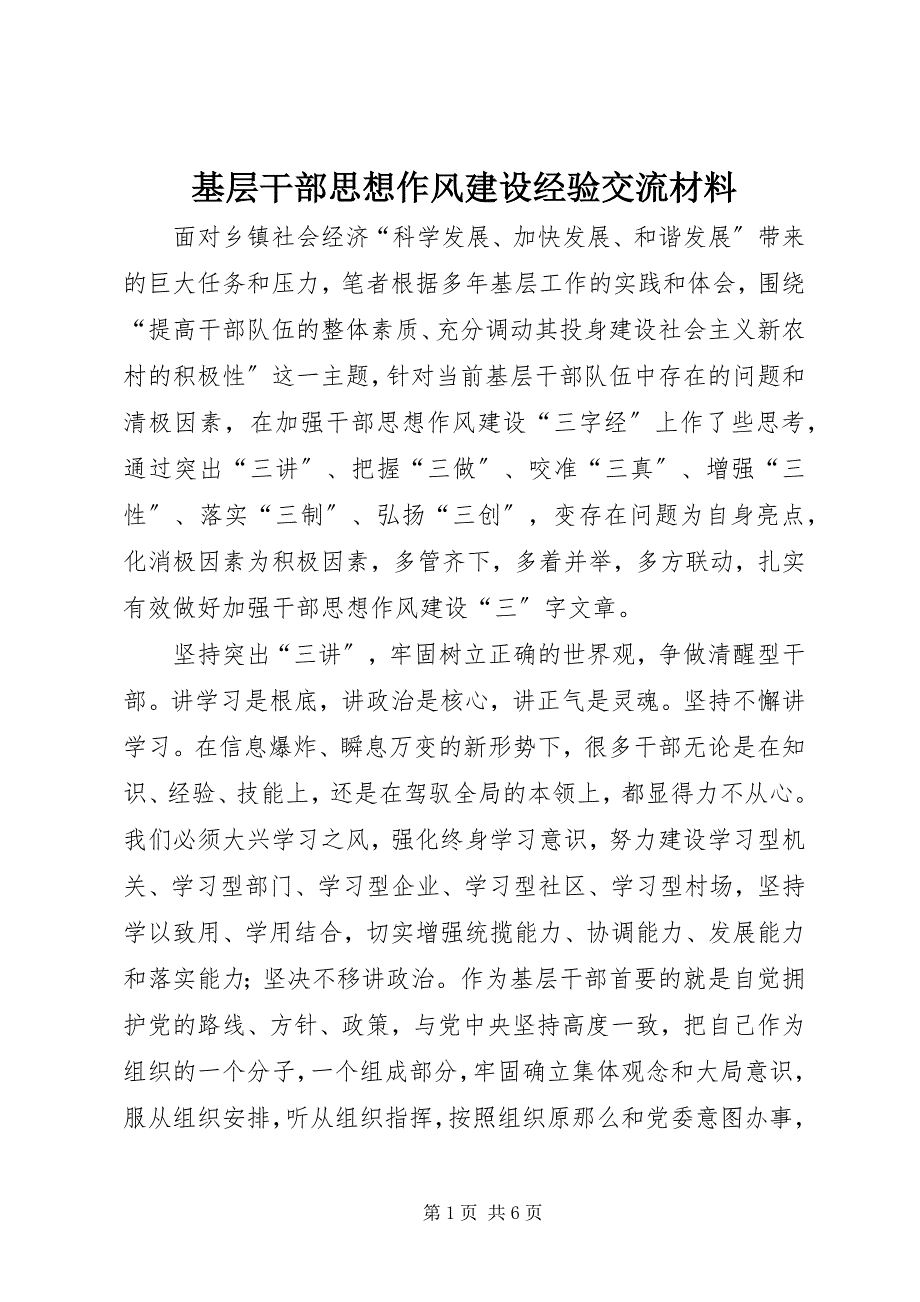 基层干部思想作风建设经验交流材料
面对乡镇社会经济“科学发展、加快发展、和谐发展〞带来
的巨大任务和压力，笔者根据多年基层工作的实践和体会，围绕
“提高干部队伍的整体素质、充分调动其投身建设社会主义新农
村的积极性〞这一主题，针对当前基层干部队伍中存在的问题和
清极因素，在加强干部思想作风建设“三字经〞上作了些思考，
通过突出“三讲〞、把握“三做〞、咬准“三真〞、增强“三
性〞、落实“三制〞、弘扬“三创〞，变存在问题为自身亮点，
化消极因素为积极因素，多管齐下，多着并举，多方联动，扎实
有效做好加强干部思想作风建设“三〞字文章。
坚持突出“三讲〞，牢固树立正确的世界观，争做清醒型干
部。讲学习是根底，讲政治是核心，讲正气是灵魂。坚持不懈讲
学习。在信息爆炸、瞬息万变的新形势下，很多干部无论是在知
识、经验、技能上，还是在驾驭全局的本领上，都显得力不从心。
我们必须大兴学习之风，强化终身学习意识，努力建设学习型机
关、学习型部门、学习型企业、学习型社区、学习型村场，坚持
学以致用、学用结合，切实增强统揽能力、协调能力、发展能力
和落实能力；坚决不移讲政治。作为基层干部首要的就是自觉拥
护党的路线、方针、政策，与党中央坚持高度一致，把自己作为
组织的一个分子，一个组成部分，牢固确立集体观念和大局意识，
服从组织安排，听从组织指挥，按照组织原那么和党委意图办事，
第 1 页 共 6 页